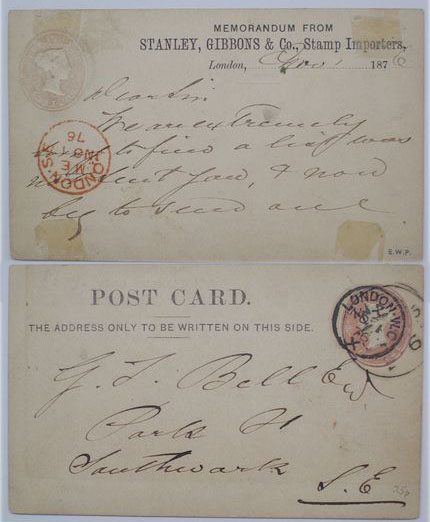 MEMORANDUM FROM
STANLEY, GIBBONS & Co., Stamp Importers,
London, Nov 1 1876
Dear Sir
We are extremely
to find a list was
not sent you, & now
beg to send one
LONDON. S.W
M E
NO 1
76
E.W.P.
POST CARD.
THE ADDRESS ONLY TO BE WRITTEN ON THIS SIDE.
LONDON. W.C
X
76
G. F. Bell Esq
Park St
Southwark
S.E